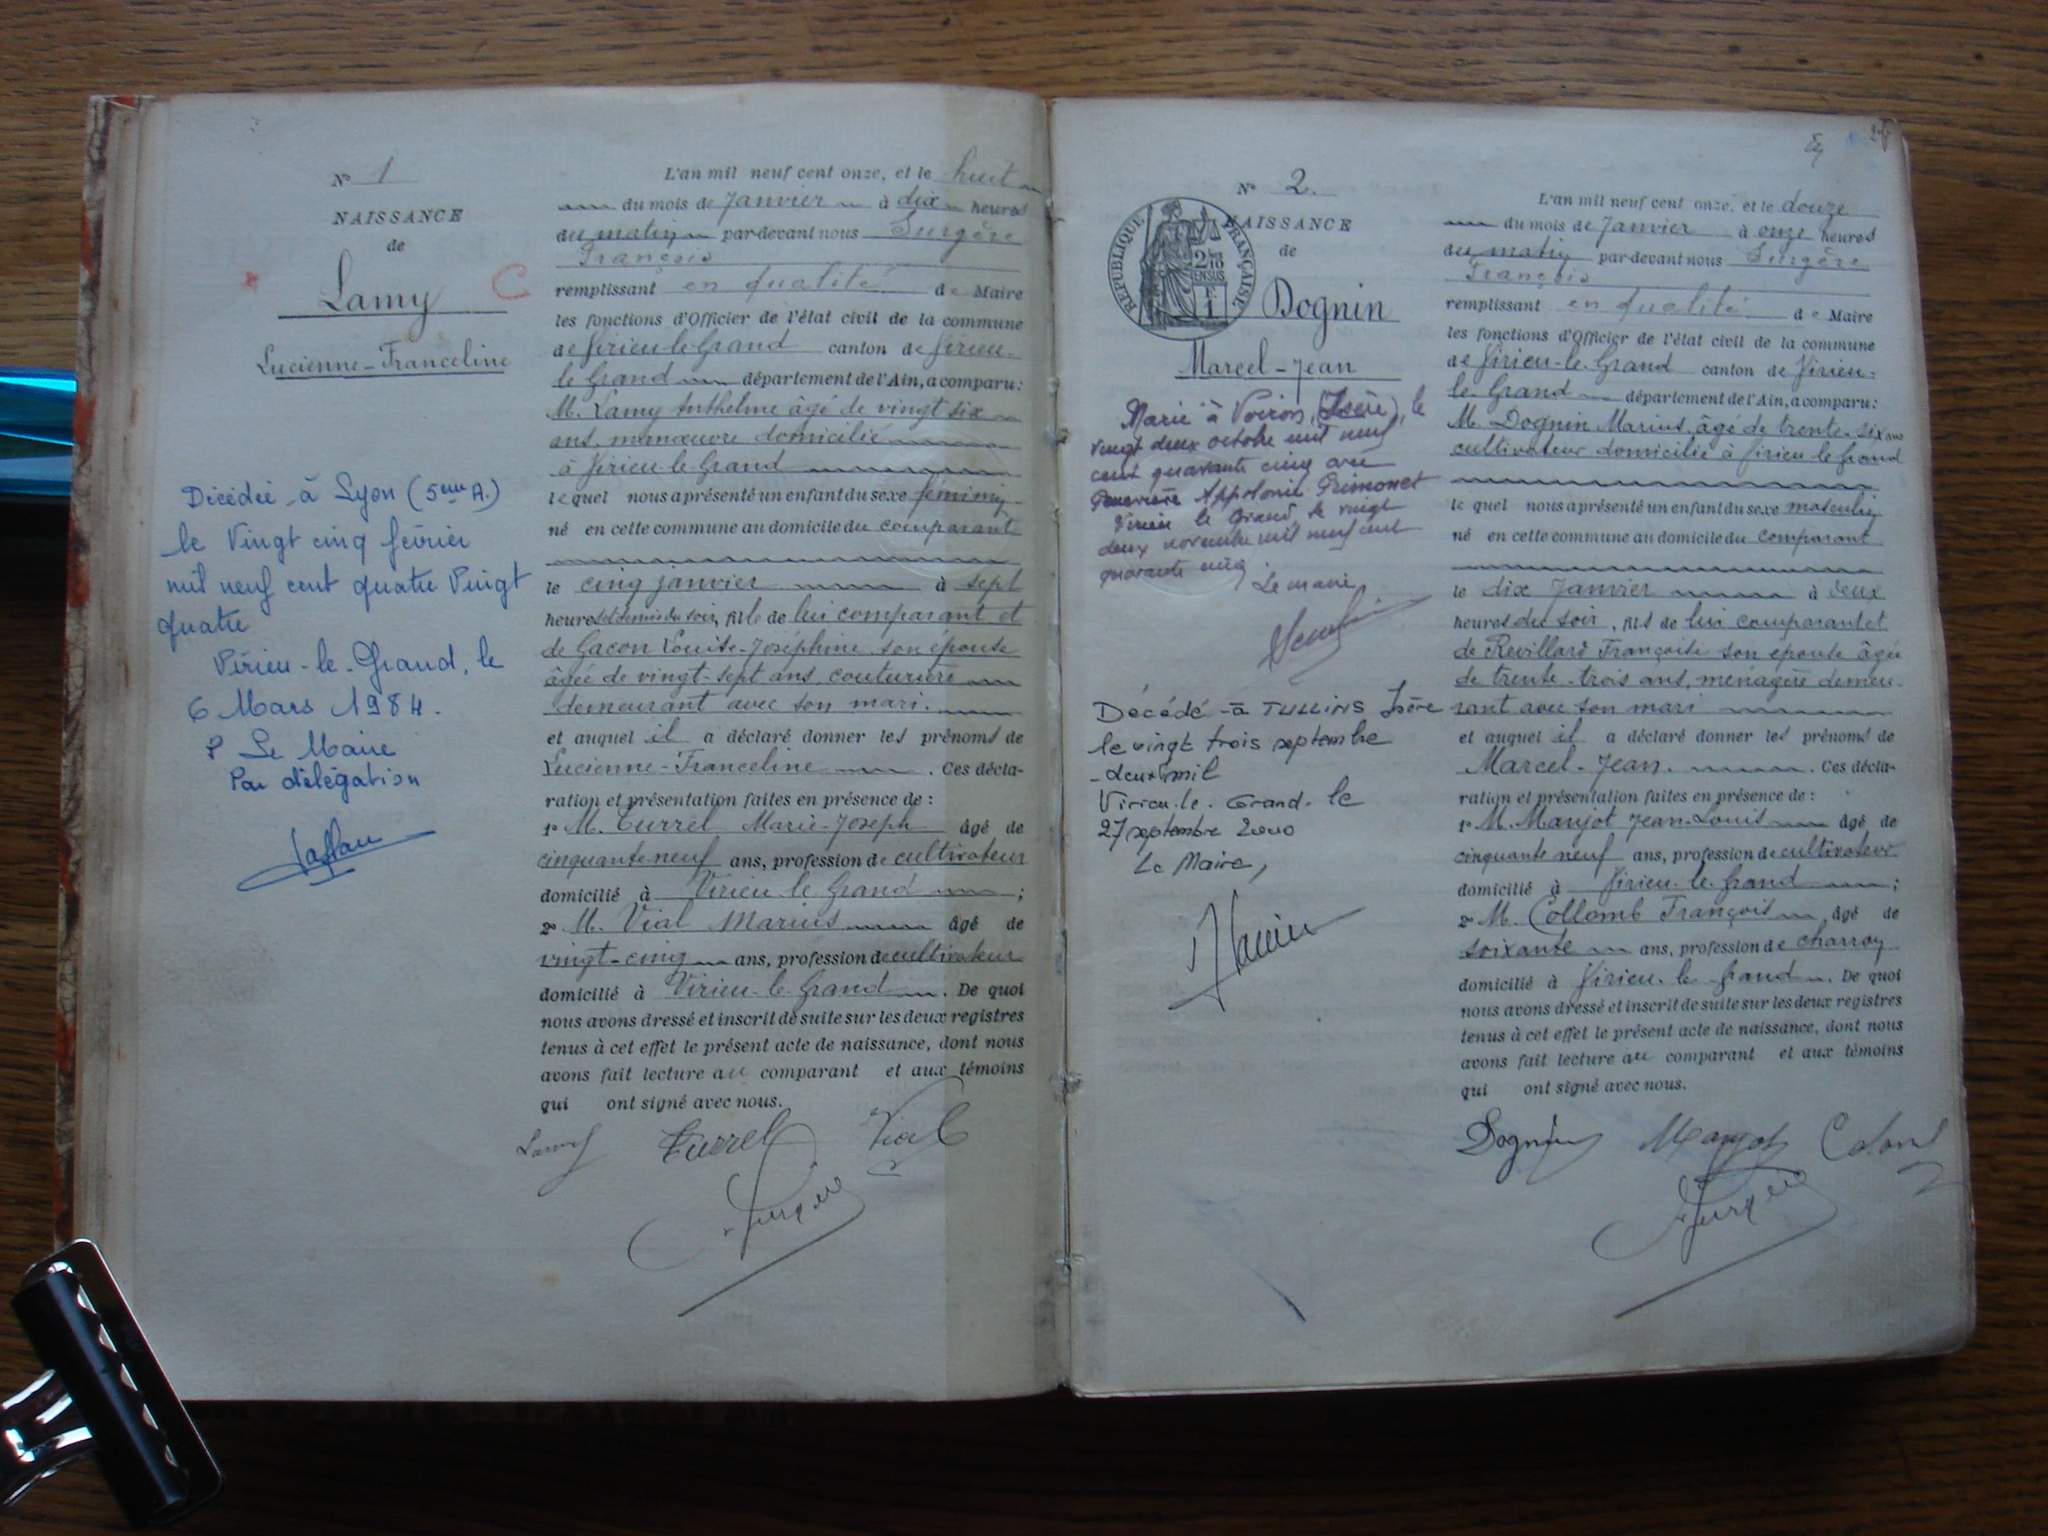 N° 1
NAISSANCE
de
Lamy
Lucienne-Franceline
C
Décédée à Lyon (5eme A.)
le Vingt cinq février
mil neuf cent quatre Vingt
quatre
Virieu-le-Grand, le
6 Mars 1984.
P Le Maire
Par délégation
L'an mil neuf cent onze, et le huit
du mois de Janvier à dix heures
du matin par-devant nous Surgère
François
remplissant en qualité de Maire
les fonctions d'Officier de l'état civil de la commune
de Virieu-le-Grand canton de Virieu-
le Grand département de l'Ain, a comparu:
M. Lamy Anthelme âgé de vingt six
ans, manœuvre domicilié
à Virieu-le-Grand
lequel nous a présenté un enfant du sexe féminin
né en cette commune au domicile du comparant
le cinq janvier à sept
heures et demie du soir, fille de lui comparant et
de Gacon Louise-Joséphine son épouse
âgée de vingt-sept ans, couturière
demeurant avec son mari.
et auquel il a déclaré donner les prénoms de
Lucienne-Franceline. Ces décla-
ration et présentation faites en présence de :
1° M. Turrel Marie-Joseph âgé de
cinquante neuf ans, profession de cultivateur
domicilié à Virieu le Grand ;
2° M. Vial Marius âgé de
vingt-cinq ans, profession de cultivateur
domicilié à Virieu-le-Grand. De quoi
nous avons dressé et inscrit de suite sur les deux registres
tenus à cet effet le présent acte de naissance, dont nous
avons fait lecture au comparant et aux témoins
qui ont signé avec nous.
Lamy Turrel Vial
Surgère
N° 2.
NAISSANCE
de
RÉPUBLIQUE FRANÇAISE
Dognin
Marcel-Jean
Marié à Voiron, (Isère), le
vingt deux octobre mil neuf
cent quarante cinq avec
Geneviève Appolonie Primonet
Virieu le Grand le vingt
deux novembre mil neuf cent
quarante cinq
Le maire,
Décédé à TULLINS Isère
le vingt trois septembre
deux mil
Virieu-le-Grand le
27 septembre 2000
Le Maire,
L'an mil neuf cent onze, et le douze
du mois de Janvier à onze heures
du matin par-devant nous Surgère
François
remplissant en qualité de Maire
les fonctions d'Officier de l'état civil de la commune
de Virieu-le-Grand canton de Virieu-
le-Grand département de l'Ain, a comparu:
M. Dognin Marius, âgé de trente-six ans
cultivateur domicilié à Virieu-le-Grand
lequel nous a présenté un enfant du sexe masculin
né en cette commune au domicile du comparant
le dix Janvier à deux
heures du soir, fils de lui comparant et
de Revillard Françoise son épouse âgée
de trente-trois ans, ménagère demeu-
rant avec son mari
et auquel il a déclaré donner les prénoms de
Marcel-Jean. Ces décla-
ration et présentation faites en présence de :
1° M. Manjot Jean-Louis âgé de
cinquante neuf ans, profession de cultivateur
domicilié à Virieu-le-Grand ;
2° M. Collomb François, âgé de
soixante ans, profession de charron
domicilié à Virieu-le-Grand. De quoi
nous avons dressé et inscrit de suite sur les deux registres
tenus à cet effet le présent acte de naissance, dont nous
avons fait lecture au comparant et aux témoins
qui ont signé avec nous.
Dognin Manjot
Surgère